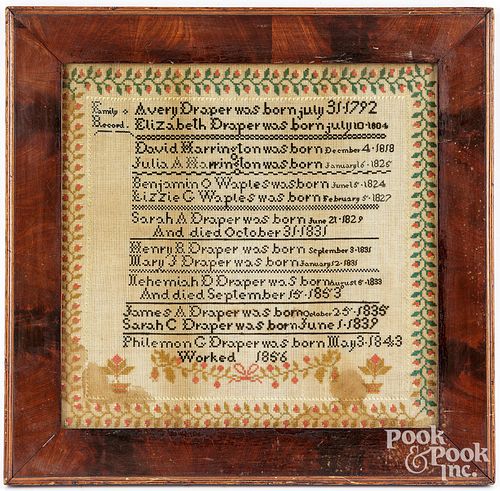 Family Record
Avery Draper was born july 31·1792
Elizabeth Draper was born july 10·1804
David Harrington was born December 4·1818
Julia A Harrington was born January 16·1826
Benjamin O Waples was born June 15·1824
Lizzie G Waples was born February 5·1827
Sarah A Draper was born June 21·1829
And died October 31·1831
Henry R Draper was born September 3·1831
Mary J Draper was born January 12·1831
Nehemiah D Draper was born August 6·1833
And died September 15·1853
James A Draper was born October 25·1835
Sarah C Draper was born June 1·1839
Philemon G Draper was born May 3·1843
Worked 1856
Pook
& Pook
Inc.